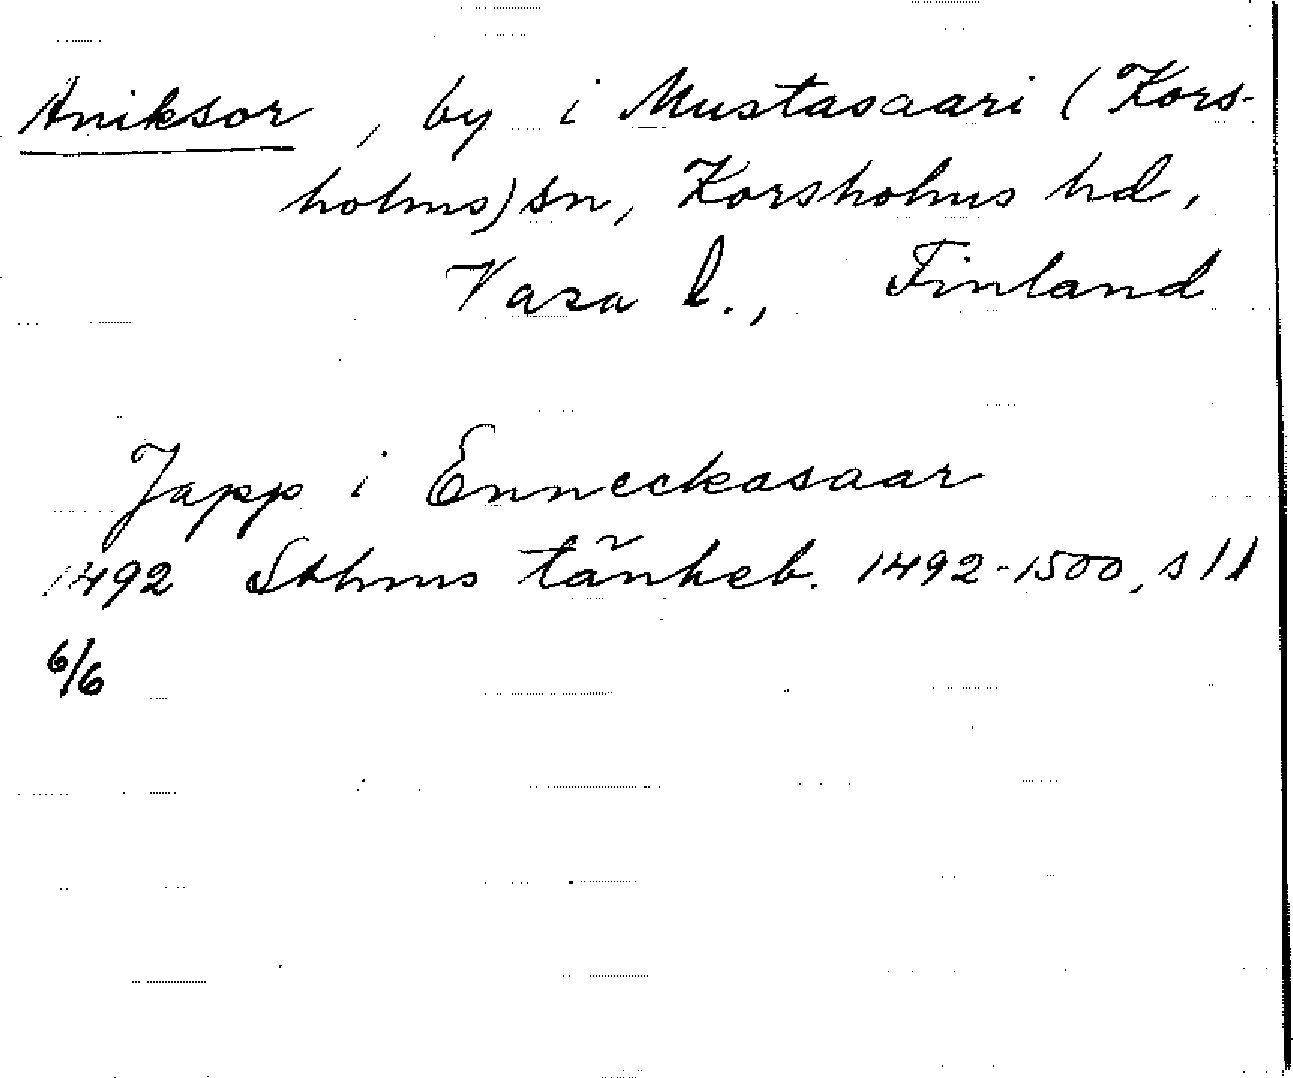 Aniksor, by i Mustasaari (Kors-
holms) sn, Korsholms hd,
Vasa l., Finland
Japp i Enneckasaar
1492 Sthms tänkeb. 1492-1500, s 11
6/6